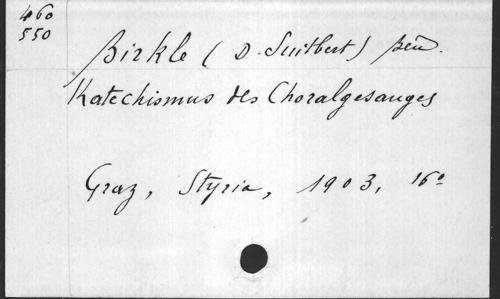 460
550
Birkle (D. Suitbert)
Katechismus des Choralgesanges
Graz, Styria, 1903, 16º